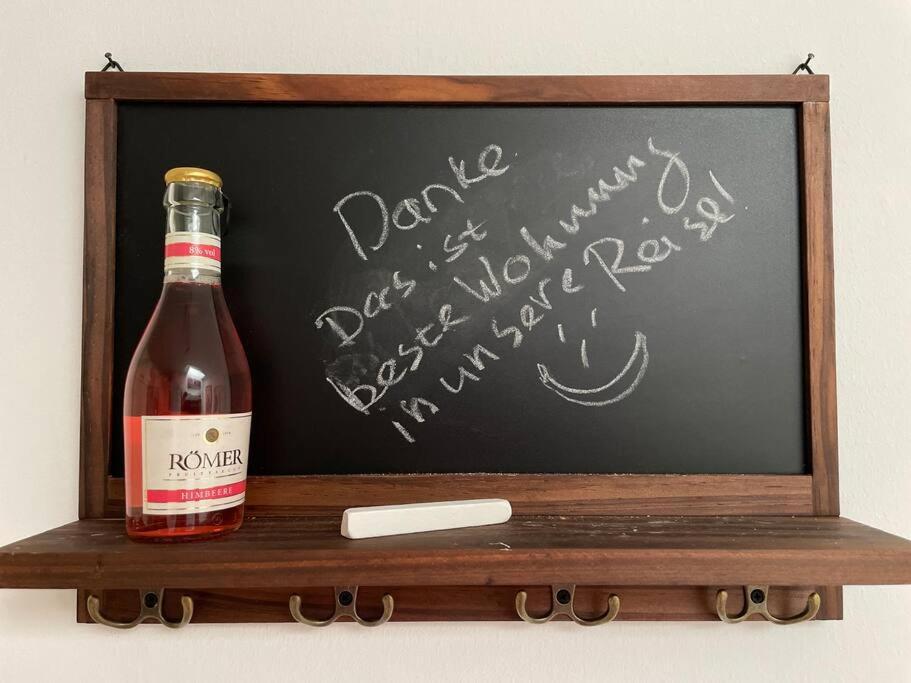 Danke
Das ist
beste Wohnung
in unsere Reise!
8% vol
RÖMER
HIMBEERE